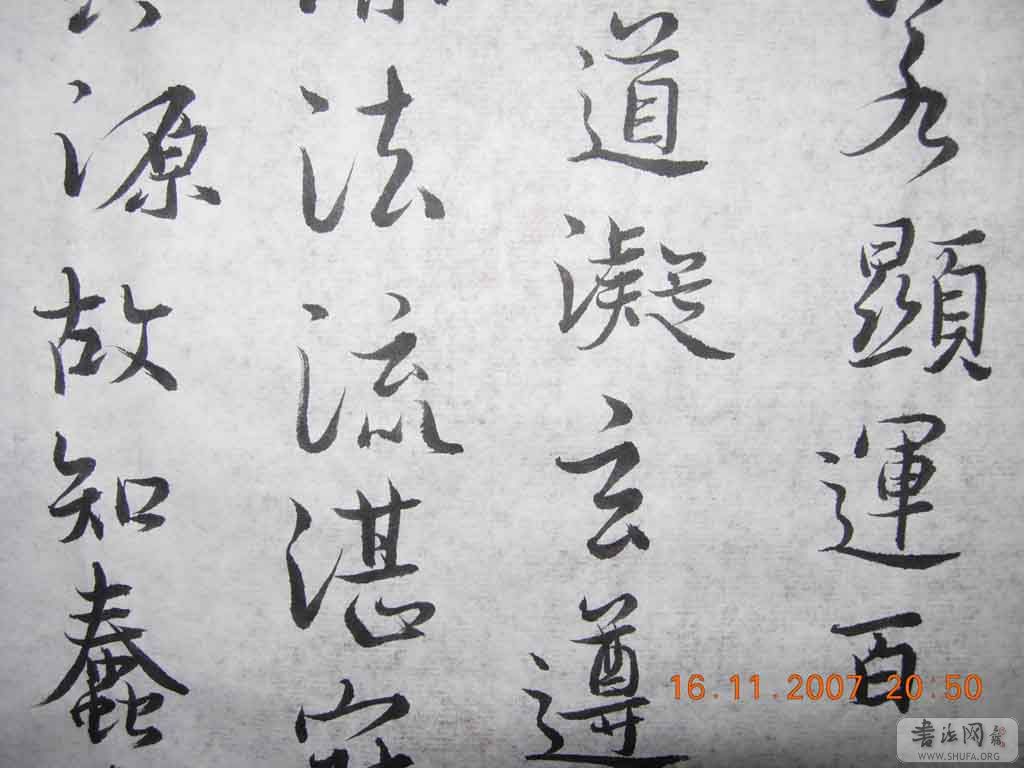 若顯運百
道凝玄遵
法流湛
源故知蠢
16.11.2007 20:50
書法网
WWW.SHUFA.ORG